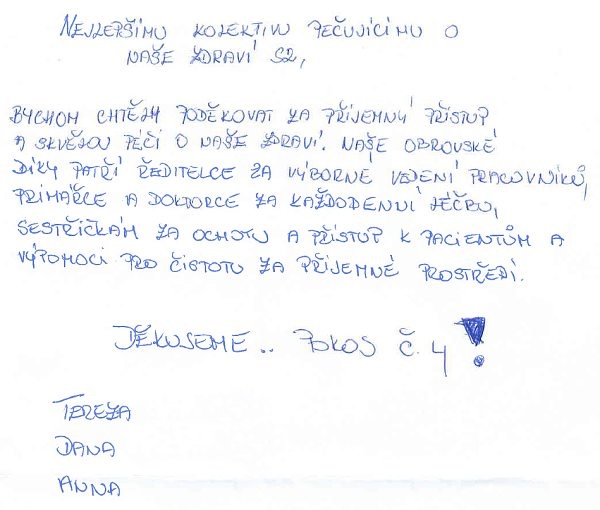 NEJLEPŠÍMU KOLEKTIVU PEČUJÍCÍMU O
NAŠE ZDRAVÍ S2,
BYCHOM CHTĚLY PODĚKOVAT ZA PŘÍJEMNÝ PŘÍSTUP
A SKVĚLOU PÉČI O NAŠE ZDRAVÍ. NAŠE OBROVSKÉ
DÍKY PATŘÍ ŘEDITELCE ZA VÝBORNÉ VEDENÍ PRACOVNÍKŮ,
PRIMÁŘCE A DOKTORCE ZA KAŽDODENNÍ LÉČBU,
SESTŘIČKÁM ZA OCHOTU A PŘÍSTUP K PACIENTŮM A
VÝPOMOCI PRO ČISTOTU ZA PŘÍJEMNÉ PROSTŘEDÍ.
DĚKUJEME.. POKOJ Č. 4!
TEREZA
DANA
ANNA